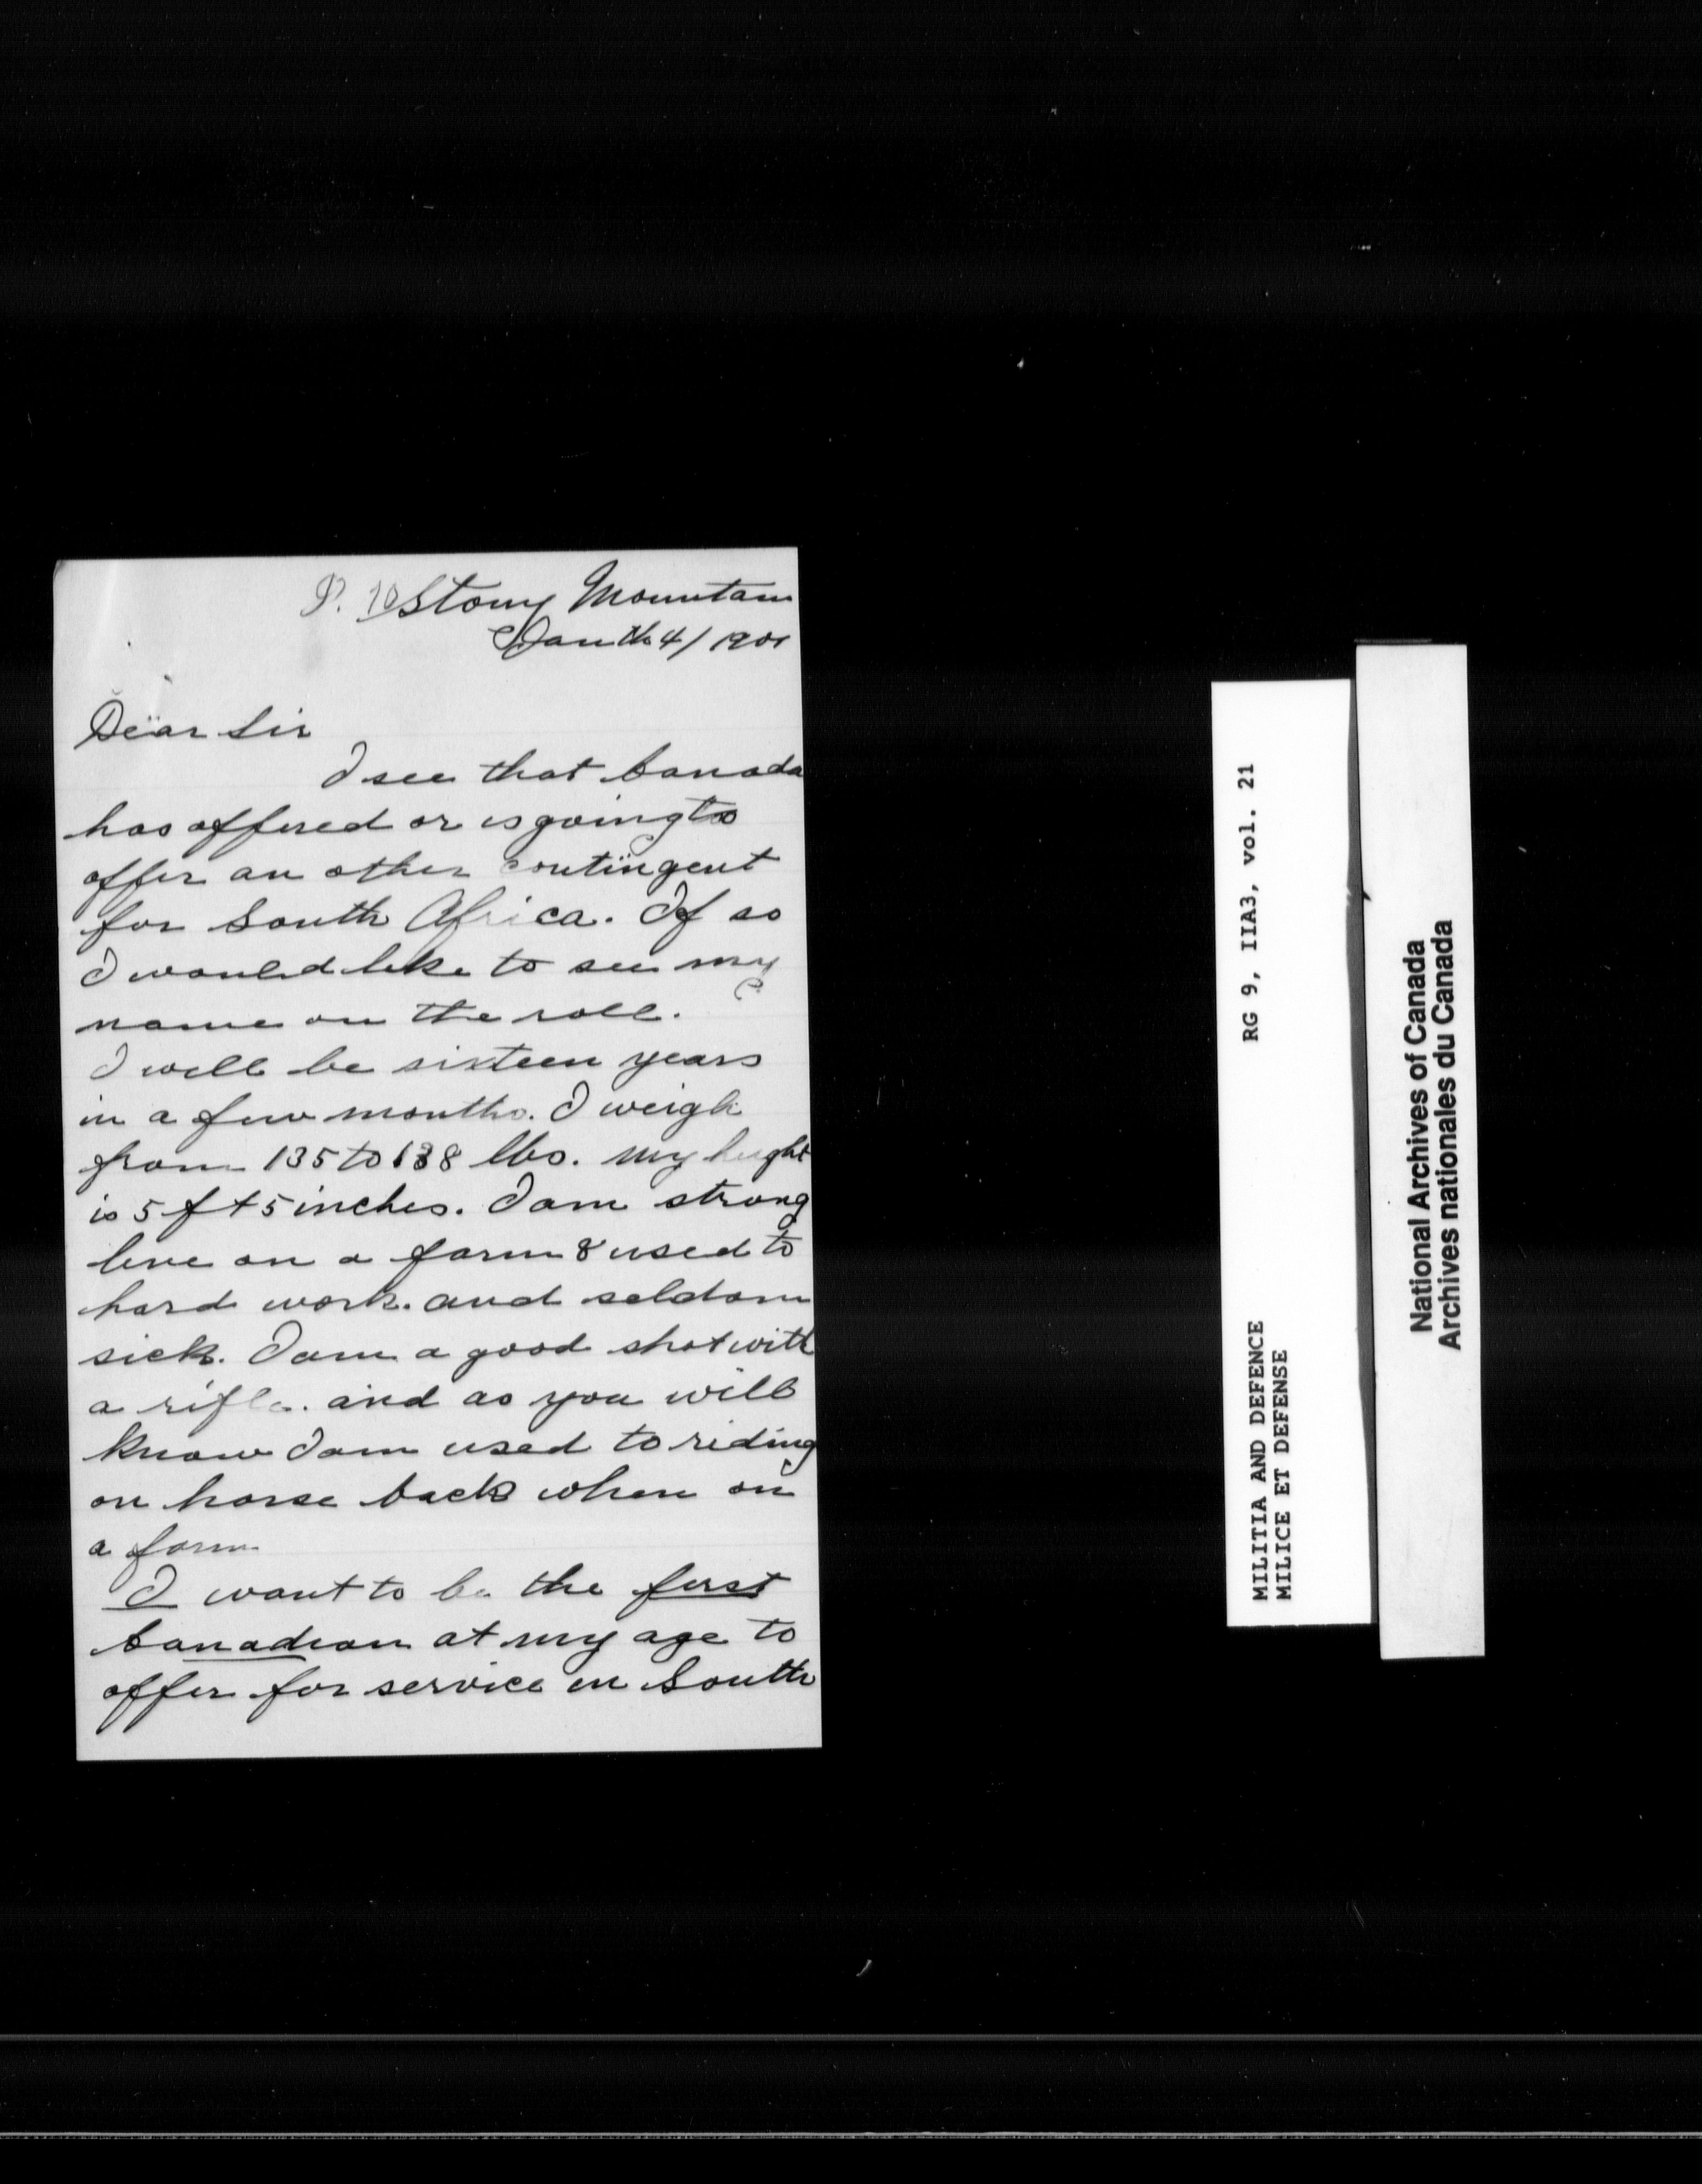 P. 10 Stony Mountain
Jan th 4/1901
Dear Sir
I see that Canada
has offered or is going to
offer an other contingent
for South Africa. If so
I would like to see my
name on the roll.
I will be sixteen years
in a few months. I weigh
from 135 to 138 lbs. my hight
is 5 ft 5 inches. I am strong
live on a farm & used to
hard work. and seldom
sick. I am a good shot with
a rifle. and as you will
know I am used to riding
on horse back when on
a farm
I want to be the first
Canadian at my age to
offer for service in South
RG 9, IIA3, vol. 21
MILITIA AND DEFENCE
MILICE ET DEFENSE
National Archives of Canada
Archives nationales du Canada